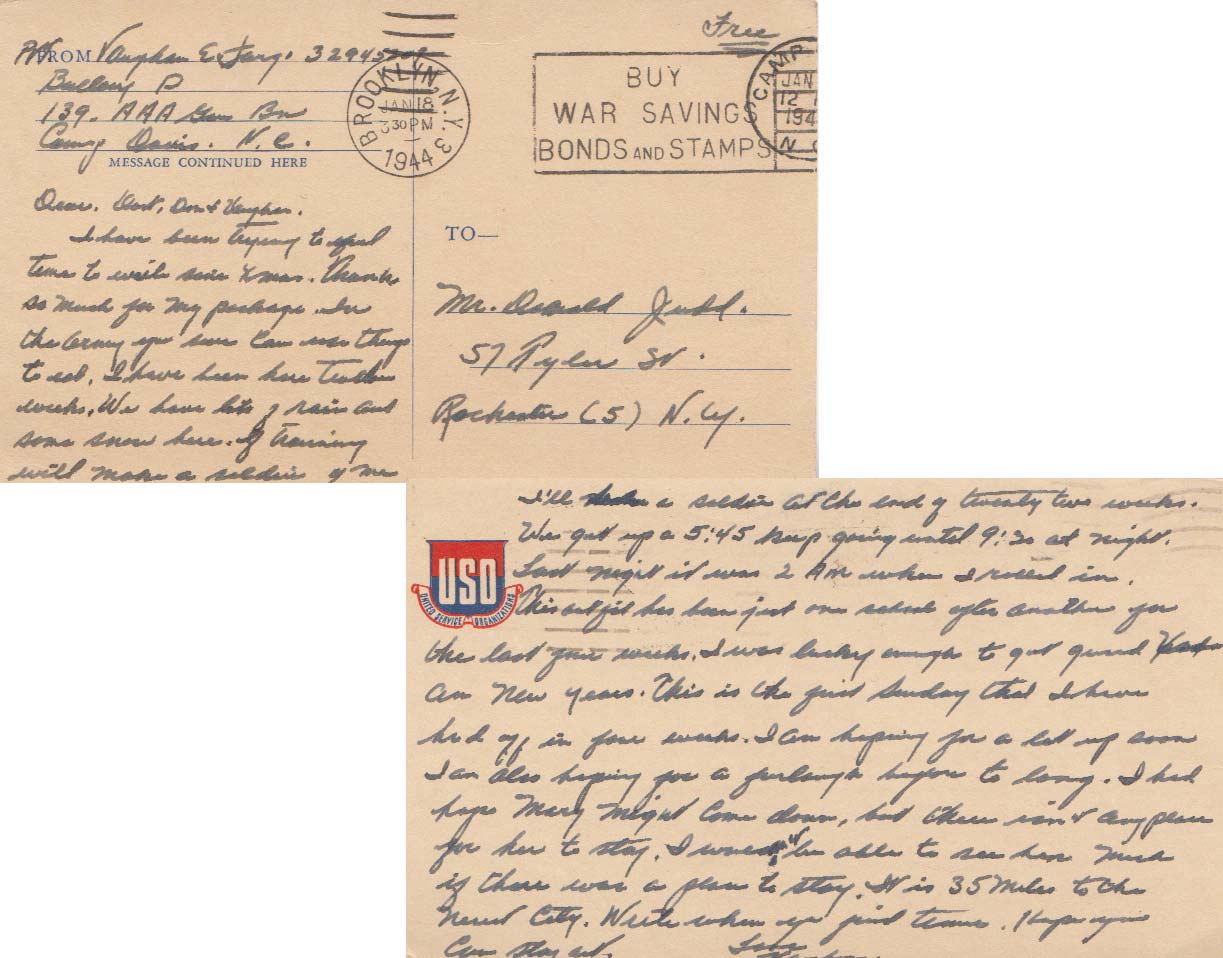 Free
FROM Pvt Vaughan E. 32945
Battery D
139. AAA Gun Bn
Camp Davis. N.C.
MESSAGE CONTINUED HERE
BROOKLYN, N.Y. 3
JAN 18
3 30 PM
1944
BUY
WAR SAVINGS
BONDS AND STAMPS
CAMP
JAN
12
194
N C
Dear. Dot, Don & Vaughan.
I have been trying to find
time to write since Xmas. Thanks
so much for my package. In
the Army you sure can use things
to eat. I have been here twelve
weeks. We have lots of rain and
some snow here. If training
will make a soldier of me
TO—
Mr. Donald Judd.
57 Tyler St.
Rochester (5) N.Y.
I'll be a soldier at the end of twenty two weeks.
We get up a 5:45 keep going until 9:30 at night.
Last night it was 2 AM when I rolled in.
USO
UNITED SERVICE ORGANIZATIONS
This outfit has been just one school after another for
the last four weeks. I was lucky enough to get guard
an New Years. This is the first Sunday that I have
had off in four weeks. I am hoping for a let up soon
I am also hoping for a furlough before to long. I had
hope Mary might come down, but there isn't any place
for her to stay. I be able to see her much
if there was a place to stay. It is 35 Miles to the
City. Write when you find time. I hope you
can
Love